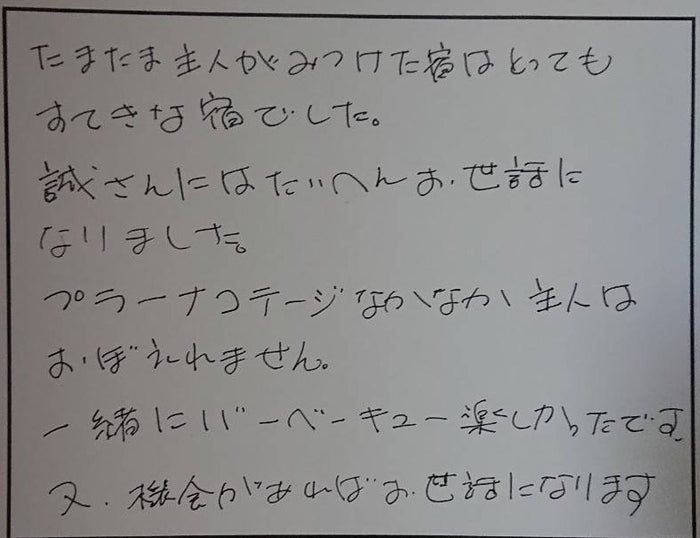 たまたま主人がみつけた宿はとっても
すてきな宿でした。
誠さんにはたいへんお世話に
なりました。
プラーナコテージなかなか主人は
おぼえれません。
一緒にバーベーキュー楽しかったです
又、機会があればお世話になります